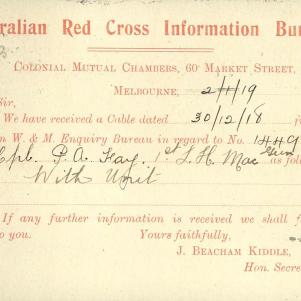 ralian Red Cross Information Bu
Colonial Mutual Chambers, 60 Market Street,
Melbourne, 2/1/19
Sir,
We have received a Cable dated 30/12/18 f
n W. & M. Enquiry Bureau in regard to No. 1449
Cpl. P. A. Fay, 1st L. H. Mac Gun as follo
With Unit
If any further information is received we shall f
to you. Yours faithfully,
J. Beacham Kiddle,
Hon. Secre